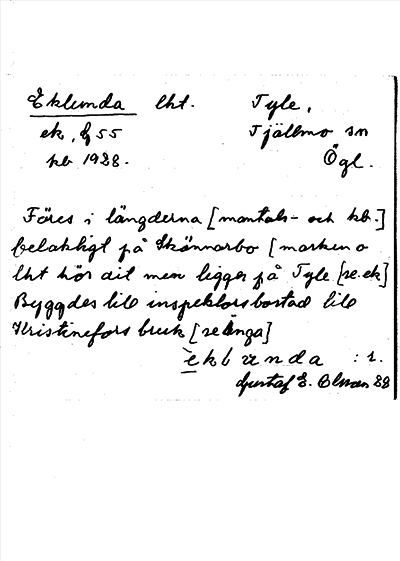 Eklunda lht. Tyle,
ek, bf 55 Tjällmo sn
kb 1928. Ögl.
Föres i längderna [mantals- och kb.]
felaktigt på Skönnarbo [marken o
lht hör dit men ligger på Tyle [se.ek]
Byggdes till inspektorsbostad till
Kristinefors bruk [se Änga]
èkbu̇nda :1.
Gustaf E. Olsson 28